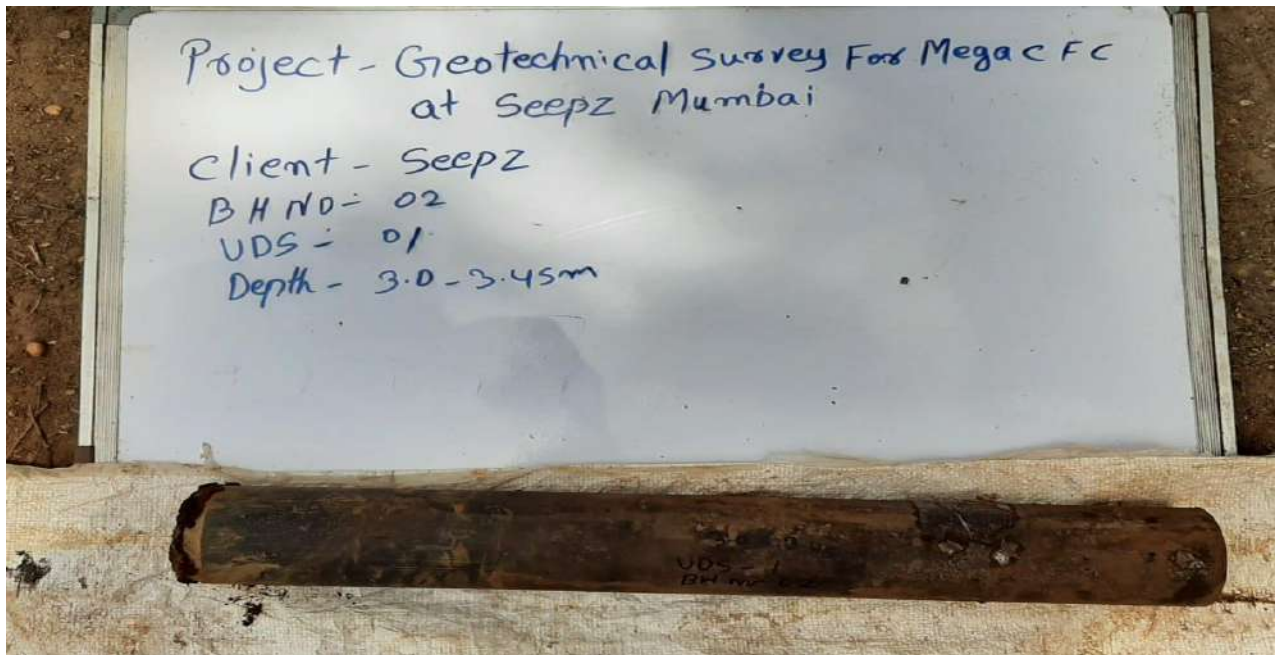 Project - Geotechnical Survey For Mega C F C
at Seepz Mumbai
Client - Seepz
BH NO - 02
UDS - 01
Depth - 3.0 - 3.45m
UDS - 1
BH NO 02